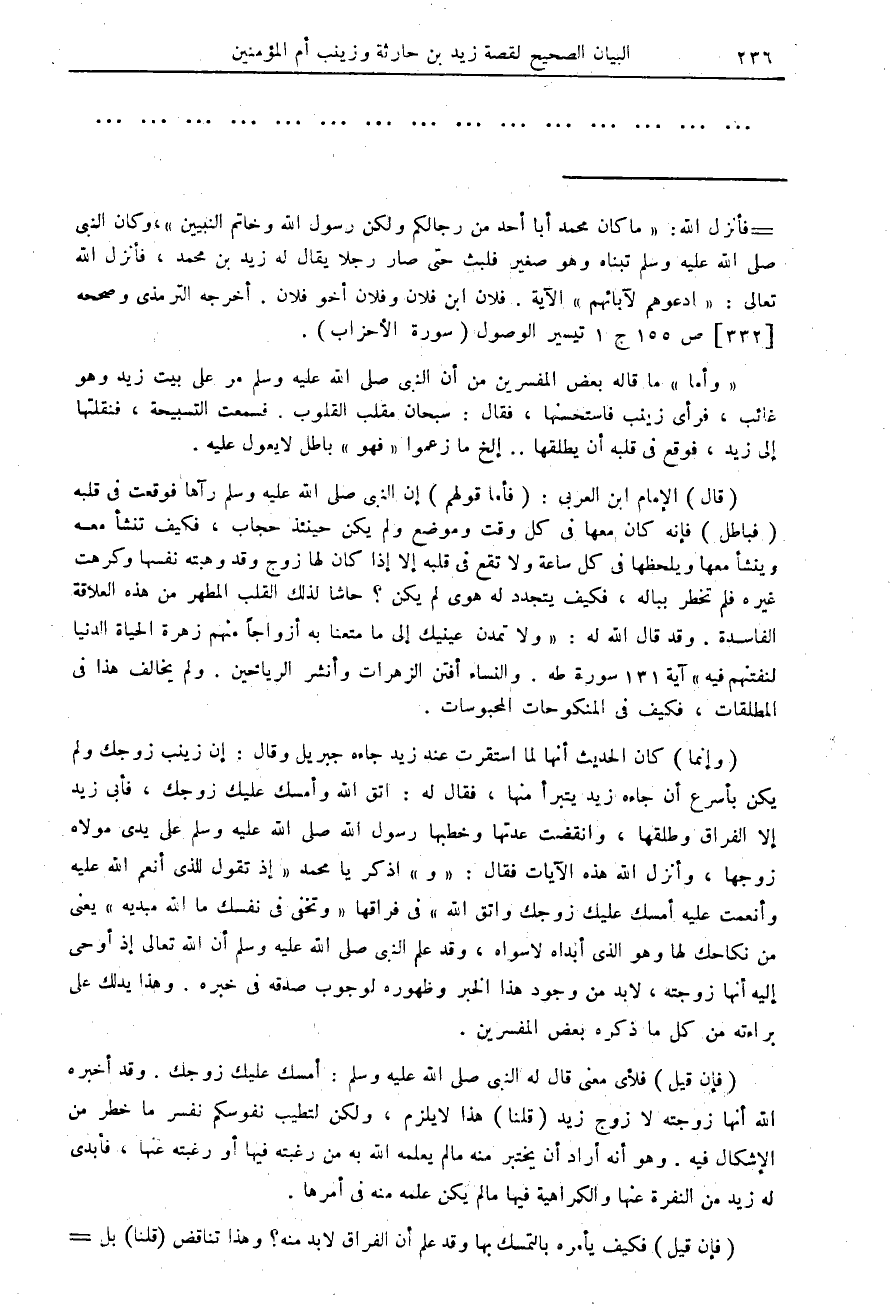 ٢٣٦ البيان الصحيح لقصة زيد بن حارثة وزينب أم المؤمنين
... ... ... ... ... ... ... ... ... ... ... ... ... ... ...
= فأنزل الله: « ما كان محمد أبا أحد من رجالكم ولكن رسول الله وخاتم النبيين »، وكان النبى
صلى الله عليه وسلم تبناه وهو صغير فلبث حتى صار رجلا يقال له زيد بن محمد ، فأنزل الله
تعالى : « ادعوهم لآبائهم » الآية . فلان ابن فلان وفلان أخو فلان . أخرجه الترمذى وصححه
[٣٣٢] ص ١٥٥ ج ١ تيسير الوصول ( سورة الأحزاب ) .
« وأما » ما قاله بعض المفسرين من أن النبى صلى الله عليه وسلم مر على بيت زيد وهو
غائب ، فرأى زينب فاستحسنها ، فقال : سبحان مقلب القلوب . فسمعت التسبيحة ، فنقلتها
إلى زيد ، فوقع فى قلبه أن يطلقها .. إلخ ما زعموا « فهو » باطل لايعول عليه .
( قال ) الإمام ابن العربى : ( فأما قولهم ) إن النبى صلى الله عليه وسلم رآها فوقعت فى قلبه
( فباطل ) فإنه كان معها فى كل وقت وموضع ولم يكن حينئذ حجاب ، فكيف تنشأ معه
وينشأ معها ويلحظها فى كل ساعة ولا تقع فى قلبه إلا إذا كان لها زوج وقد وهبته نفسها وكرهت
غيره فلم تخطر بباله ، فكيف يتجدد له هوى لم يكن ؟ حاشا لذلك القلب المطهر من هذه العلاقة
الفاسدة . وقد قال الله له : « ولا تمدن عينيك إلى ما متعنا به أزواجاً منهم زهرة الحياة الدنيا
لنفتنهم فيه » آية ١٣١ سورة طه . والنساء أفتن الزهرات وأنشر الرياحين . ولم يخالف هذا فى
المطلقات ، فكيف فى المنكوحات المحبوسات .
( وإنما ) كان الحديث أنها لما استقرت عند زيد جاءه جبريل وقال : إن زينب زوجك ولم
يكن بأسرع أن جاءه زيد يتبرأ منها ، فقال له : اتق الله وأمسك عليك زوجك ، فأبى زيد
إلا الفراق وطلقها ، وانقضت عدتها وخطبها رسول الله صلى الله عليه وسلم على يدى مولاه
زوجها ، وأنزل الله هذه الآيات فقال : « و » اذكر يا محمد « إذ تقول للذى أنعم الله عليه
وأنعمت عليه أمسك عليك زوجك واتق الله » فى فراقها « وتخفى فى نفسك ما الله مبديه » يعنى
من نكاحك لها وهو الذى أبداه لاسواه ، وقد علم النبى صلى الله عليه وسلم أن الله تعالى إذ أوحى
إليه أنها زوجته ، لابد من وجود هذا الخبر وظهوره لوجوب صدقه فى خبره . وهذا يدلك على
براءته من كل ما ذكره بعض المفسرين .
( فإن قيل ) فلأى معنى قال له النبى صلى الله عليه وسلم : أمسك عليك زوجك . وقد أخبره
الله أنها زوجته لا زوج زيد ( قلنا ) هذا لايلزم ، ولكن لتطيب نفوسكم نفسر ما خطر من
الإشكال فيه . وهو أنه أراد أن يختبر منه مالم يعلمه الله به من رغبته فيها أو رغبته عنها ، فأبدى
له زيد من النفرة عنها والكراهية فيها مالم يكن علمه منه فى أمرها .
( فإن قيل ) فكيف يأمره بالتمسك بها وقد علم أن الفراق لابد منه؟ وهذا تناقض (قلنا) بل =